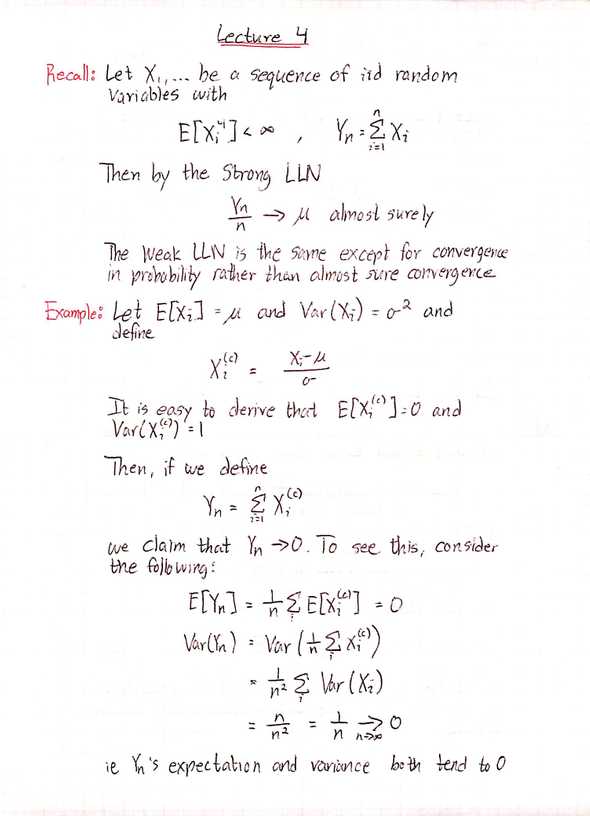 Lecture 4
Recall: Let X₁,... be a sequence of iid random
variables with
E[Xᵢ⁴] < ∞ , Yₙ = Σᵢ₌₁ⁿ Xᵢ
Then by the Strong LLN
Yₙ/n → μ almost surely
The Weak LLN is the same except for convergence
in probability rather than almost sure convergence
Example: Let E[Xᵢ] = μ and Var(Xᵢ) = σ² and
define
Xᵢ⁽ᶜ⁾ = (Xᵢ-μ)/σ
It is easy to derive that E[Xᵢ⁽ᶜ⁾] = 0 and
Var(Xᵢ⁽ᶜ⁾) = 1
Then, if we define
Yₙ = Σᵢ₌₁ⁿ Xᵢ⁽ᶜ⁾
we claim that Yₙ → 0. To see this, consider
the following:
E[Yₙ] = 1/n Σᵢ E[Xᵢ⁽ᶜ⁾] = 0
Var(Yₙ) = Var(1/n Σᵢ Xᵢ⁽ᶜ⁾)
= 1/n² Σᵢ Var(Xᵢ)
= n/n² = 1/n →ₙ→∞ 0
ie Yₙ's expectation and variance both tend to 0